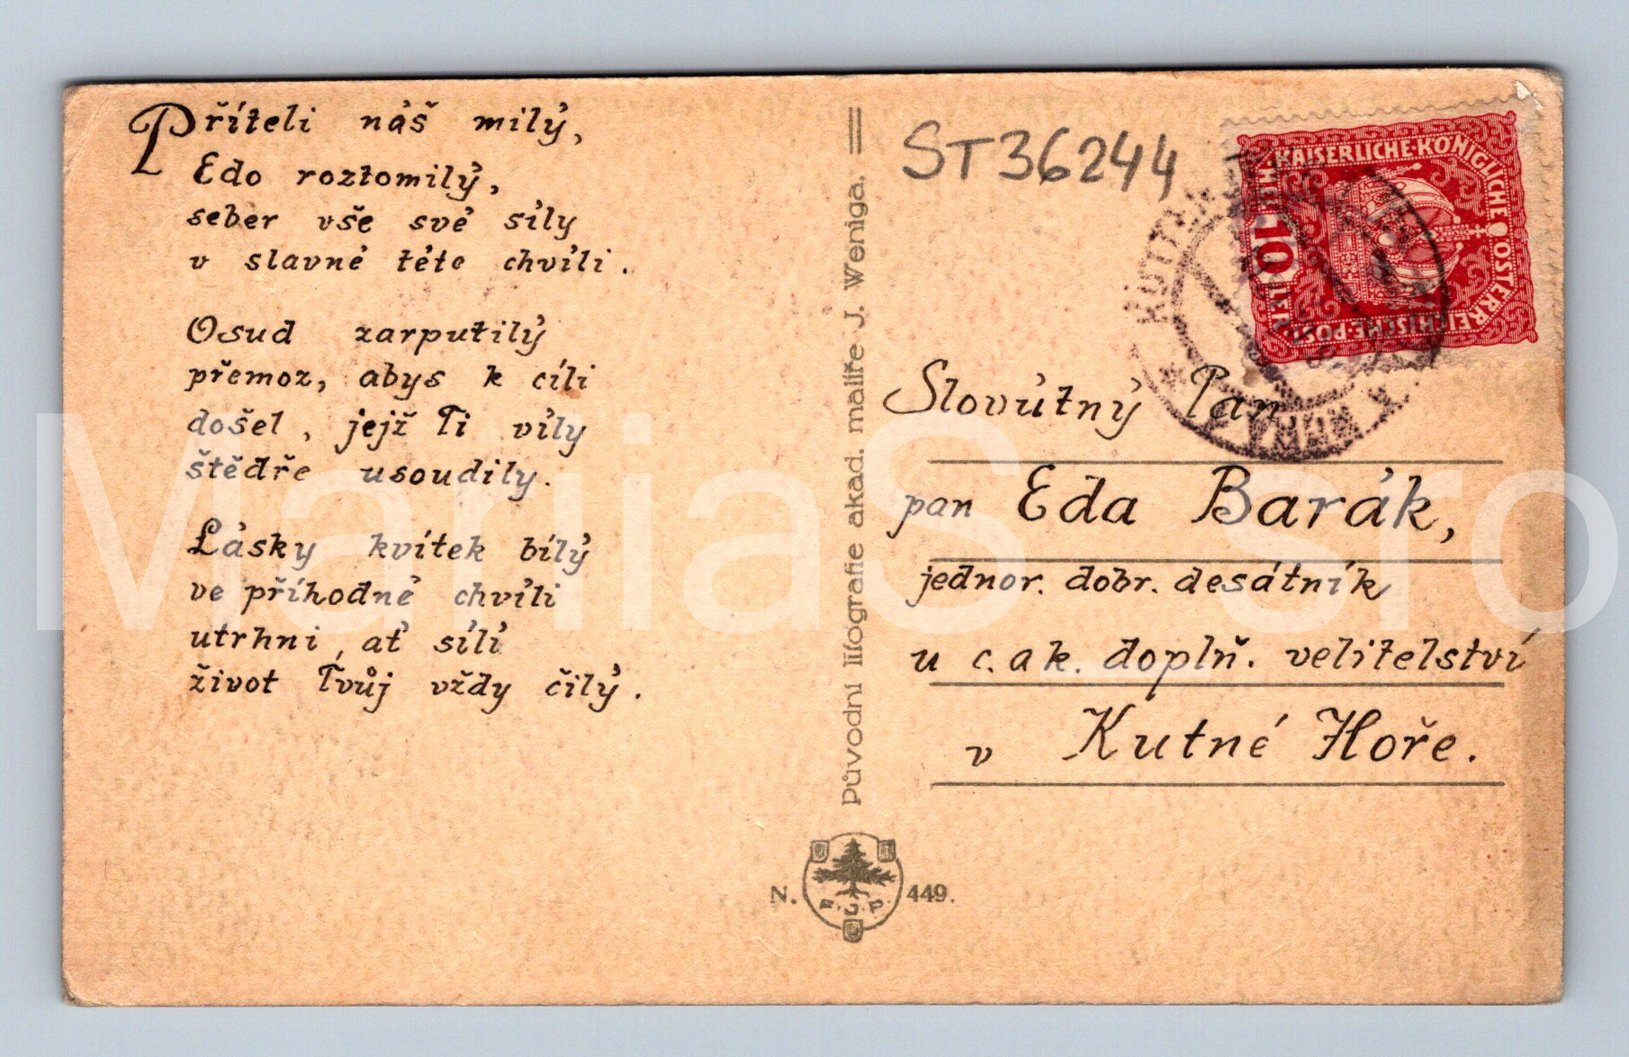 Příteli náš milý,
Edo roztomilý,
seber vše své síly
v slavné této chvíli.
Osud zarputilý
přemoz, abys k cíli
došel, jejž Ti víly
štědře usoudily.
Lásky kvítek bílý
ve příhodné chvíli
utrhni, ať sílí
život Tvůj vždy čilý.
Původní litografie akad. malíře J. Weniga.
N. 449.
F. J. P.
ST36244
KAISERLICHE KÖNIGLICHE ÖSTERREICHISCHE POST
10 HELLER
Slovútný Pan
pan Eda Barák,
jednor. dobr. desátník
u c. a k. doplň. velitelství
v Kutné Hoře.
MariiaS sro